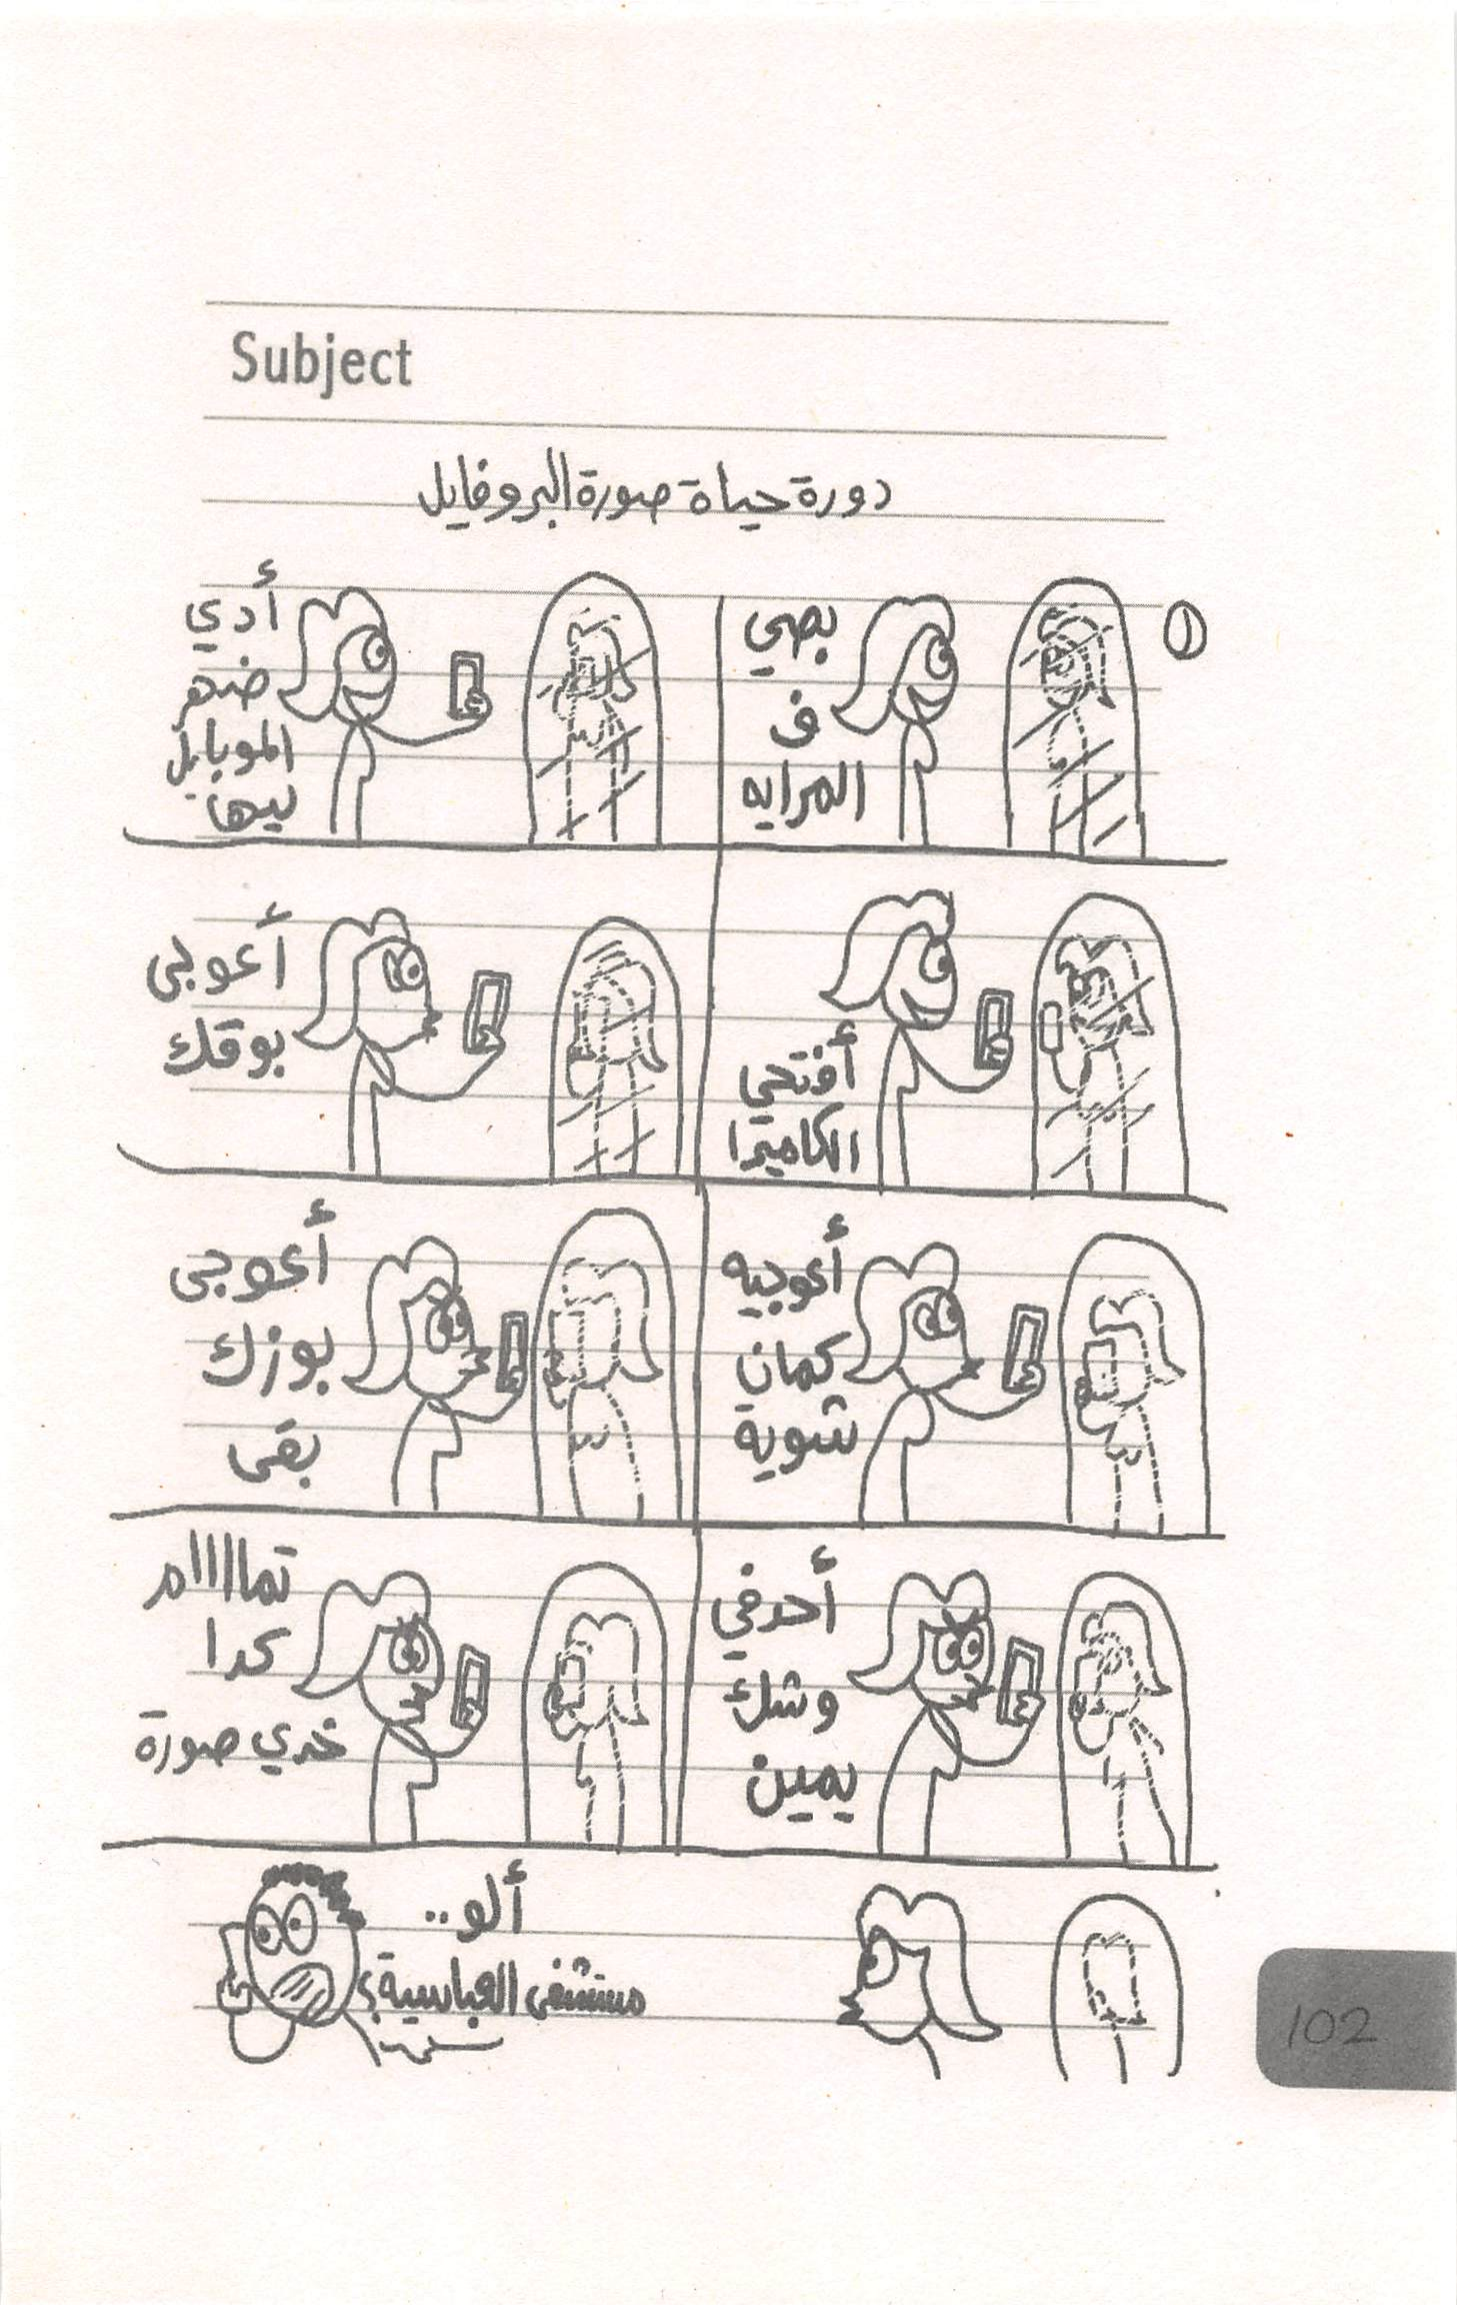 Subject
دورة حياة صورة البروفايل
١
بصي
ف
المرايه
أدي
ضهر
الموبايل
ليها
أفتحي
الكاميرا
أعوجي
بوقك
أعوجيه
كمان
شوية
أعوجى
بوزك
بقى
أحدفي
وشك
يمين
تمااااام
كدا
خدي صورة
ألو..
مستشفى العباسية؟
102